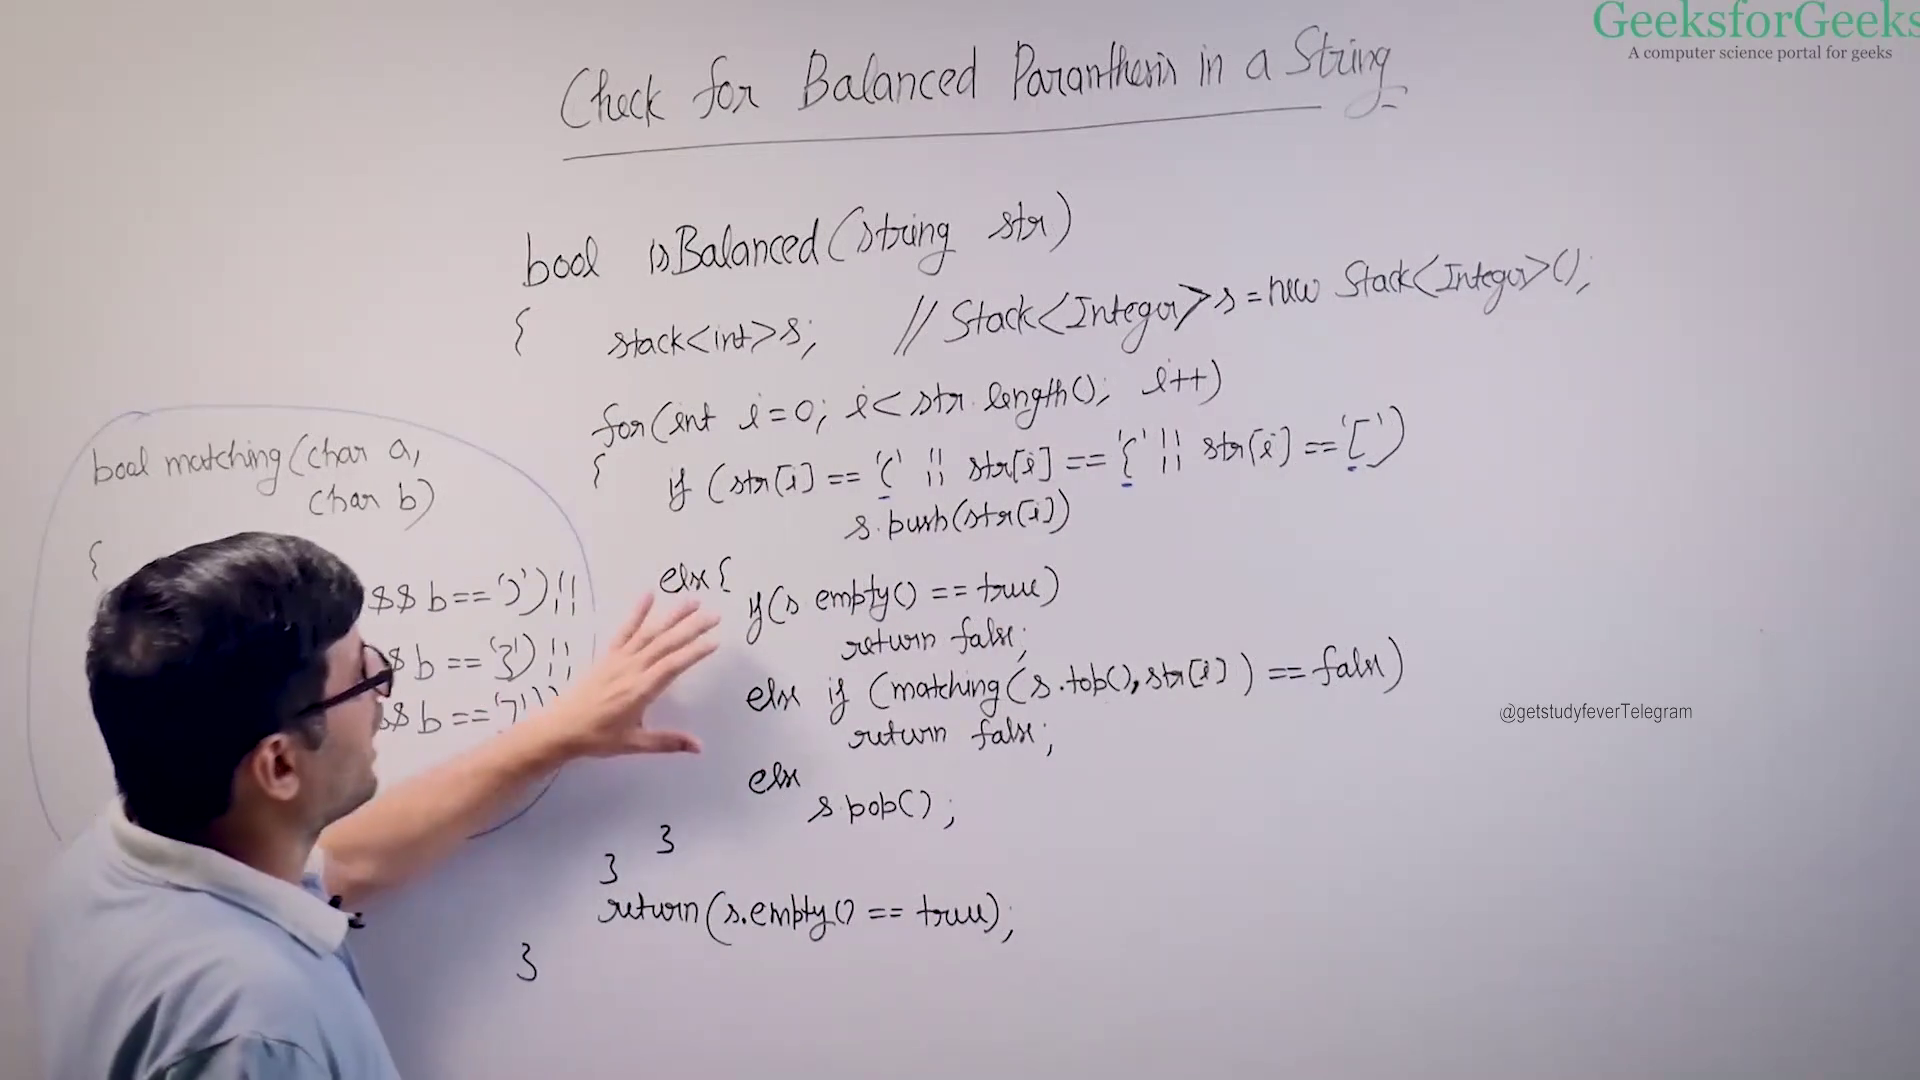 GeeksforGeeks
A computer science portal for geeks
Check for Balanced Paranthesis in a String
bool isBalanced(string str)
{ stack<int>s; // Stack<Integer>s=new Stack<Integer>();
for(int i=0; i<str.length(); i++)
{ if (str[i]=='(' || str[i]=='{' || str[i]=='[')
s.push(str[i])
else{
if(s empty() == true)
return false;
else if (matching(s.top(),str[i]) == false)
return false;
else
s pop();
}
}
return(s.empty() == true);
}
bool matching(char a,
char b)
{
&& b==')')||
& b=='}')||
&& b==']'))
@getstudyfeverTelegram